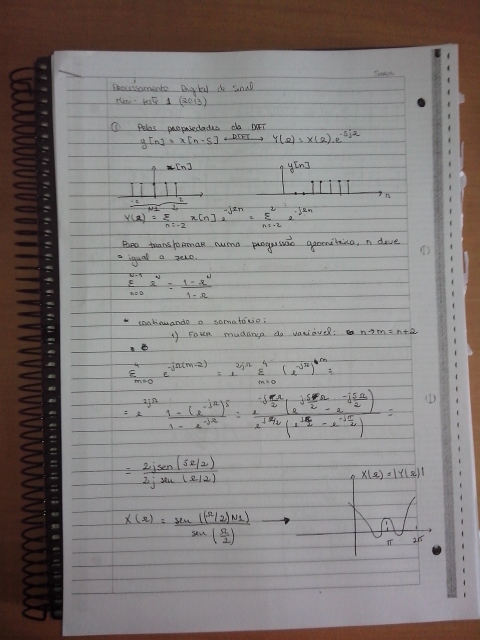 Processamento Digital de Sinal
Mini-teste 1 (2013)
① Pelas propriedades da DTFT
y[n] = x[n-5] ⟷DTFT Y(Ω) = X(Ω).e^{-5jΩ}
x[n]
y[n]
-2 2
N1
n
Y(Ω) = Σ_{n=-2}^{2} x[n] e^{-jΩn} = Σ_{n=-2}^{2} e^{-jΩn}
Para transformar numa progressão geométrica, n deve
igual a zero.
Σ_{n=0}^{N-1} r^N = (1-r^N)/(1-r)
* continuando o somatório:
1) Fazer mudança de variável: n→m = n+2
Σ_{m=0}^{4} e^{-jΩ(m-2)} = e^{2jΩ} Σ_{m=0}^{4} (e^{-jΩ})^m =
= e^{2jΩ} (1-(e^{-jΩ})^5)/(1-e^{-jΩ}) =
= 2j sen(5Ω/2) / 2j sen(Ω/2)
X(Ω) = |Y(Ω)|
X(Ω) = sen((Ω/2)N1) / sen(Ω/2) →
π 2π